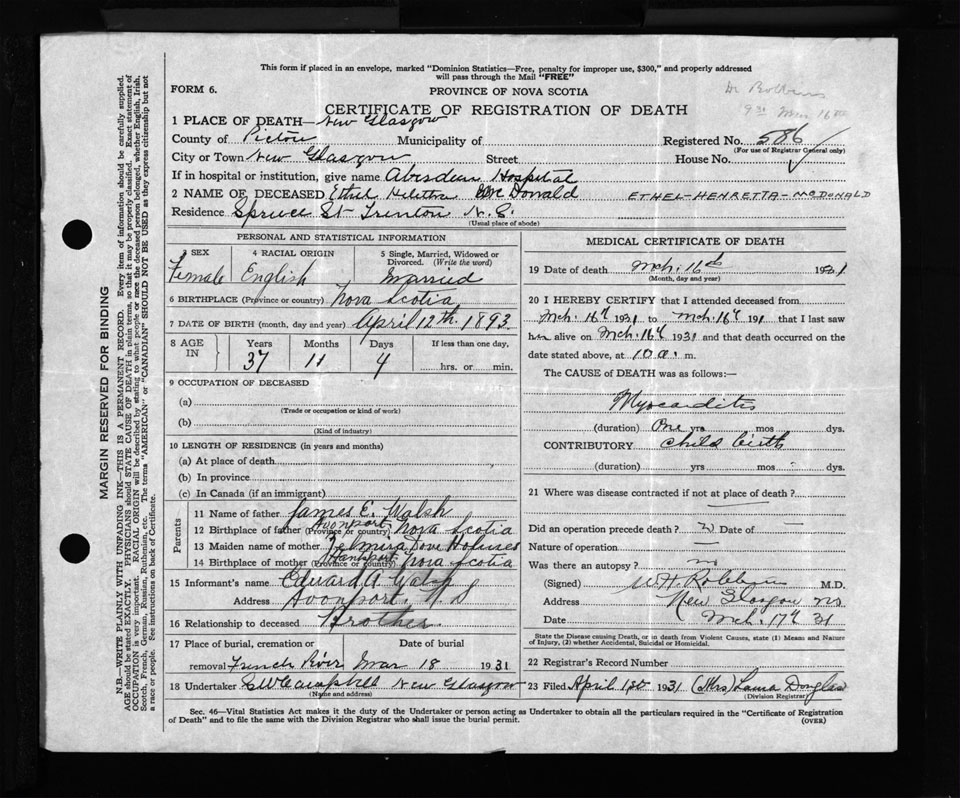 This form if placed in an envelope, marked "Dominion Statistics—Free, penalty for improper use, $300," and properly addressed
will pass through the Mail "FREE"
FORM 6.
PROVINCE OF NOVA SCOTIA
Dr Robbins
9 30 Mar 16th
CERTIFICATE OF REGISTRATION OF DEATH
1 PLACE OF DEATH— New Glasgow
County of Pictou Municipality of Registered No. 586
(For use of Registrar General only)
City or Town New Glasgow Street House No.
If in hospital or institution, give name Aberdeen Hospital
2 NAME OF DECEASED Ethel McDonald ETHEL-HENRETTA-McDONALD
Residence Spruce St Trenton N.S.
(Usual place of abode)
PERSONAL AND STATISTICAL INFORMATION
3 SEX 4 RACIAL ORIGIN 5 Single, Married, Widowed or Divorced. (Write the word)
Female English Married
6 BIRTHPLACE (Province or country) Nova Scotia
7 DATE OF BIRTH (month, day and year) April 12th. 1893.
8 AGE IN Years Months Days If less than one day,
37 11 4 hrs. or min.
9 OCCUPATION OF DECEASED
(a)
(Trade or occupation or kind of work)
(b)
(Kind of industry)
10 LENGTH OF RESIDENCE (in years and months)
(a) At place of death
(b) In province
(c) In Canada (if an immigrant)
Parents
11 Name of father James E. Walsh
12 Birthplace of father (Province or country) Avonport Nova Scotia
13 Maiden name of mother Dove
14 Birthplace of mother (Province or country) Hantsport Nova Scotia
15 Informant's name Edward A Walsh
Address Avonport, N S
16 Relationship to deceased Brother
17 Place of burial, cremation or Date of burial
removal French River Mar 18 1931
18 Undertaker Campbell New Glasgow
(Name and address)
MEDICAL CERTIFICATE OF DEATH
19 Date of death Mch. 16th 1931
(Month, day and year)
20 I HEREBY CERTIFY that I attended deceased from
Mch. 16th 1931 to Mch. 16th 191 that I last saw
her alive on Mch. 16th 1931 and that death occurred on the
date stated above, at 10 a. m.
The CAUSE of DEATH was as follows:—
Myocarditis
(duration) One yrs mos dys.
CONTRIBUTORY Child birth
(duration) yrs mos dys.
21 Where was disease contracted if not at place of death?
Did an operation precede death? Date of —
Nature of operation —
Was there an autopsy? no
(Signed) W H Robbins M.D.
Address New Glasgow NS
Date Mch. 17th 31
State the Disease causing Death, or in death from Violent Causes, state (1) Means and Nature
of Injury, (2) whether Accidental, Suicidal or Homicidal.
22 Registrar's Record Number
23 Filed April 1st 1931 (Mrs) Laura Douglas
(Division Registrar)
Sec. 46—Vital Statistics Act makes it the duty of the Undertaker or person acting as Undertaker to obtain all the particulars required in the "Certificate of Registration
of Death" and to file the same with the Division Registrar who shall issue the burial permit.
(OVER)
MARGIN RESERVED FOR BINDING
N.B.—WRITE PLAINLY WITH UNFADING INK—THIS IS A PERMANENT RECORD. Every item of information should be carefully supplied.
AGE should be stated EXACTLY. PHYSICIANS should STATE CAUSE OF DEATH in plain terms, so that it may be properly classified. Exact statement of
OCCUPATION is very important. RACIAL ORIGIN will be described by stating to what people or race the deceased person belonged, whether English, Irish,
Scotch, French, German, Russian, Ruthenian, etc. The terms "AMERICAN" or "CANADIAN" SHOULD NOT BE USED as they express citizenship but not
a race or people. See instructions on back of Certificate.